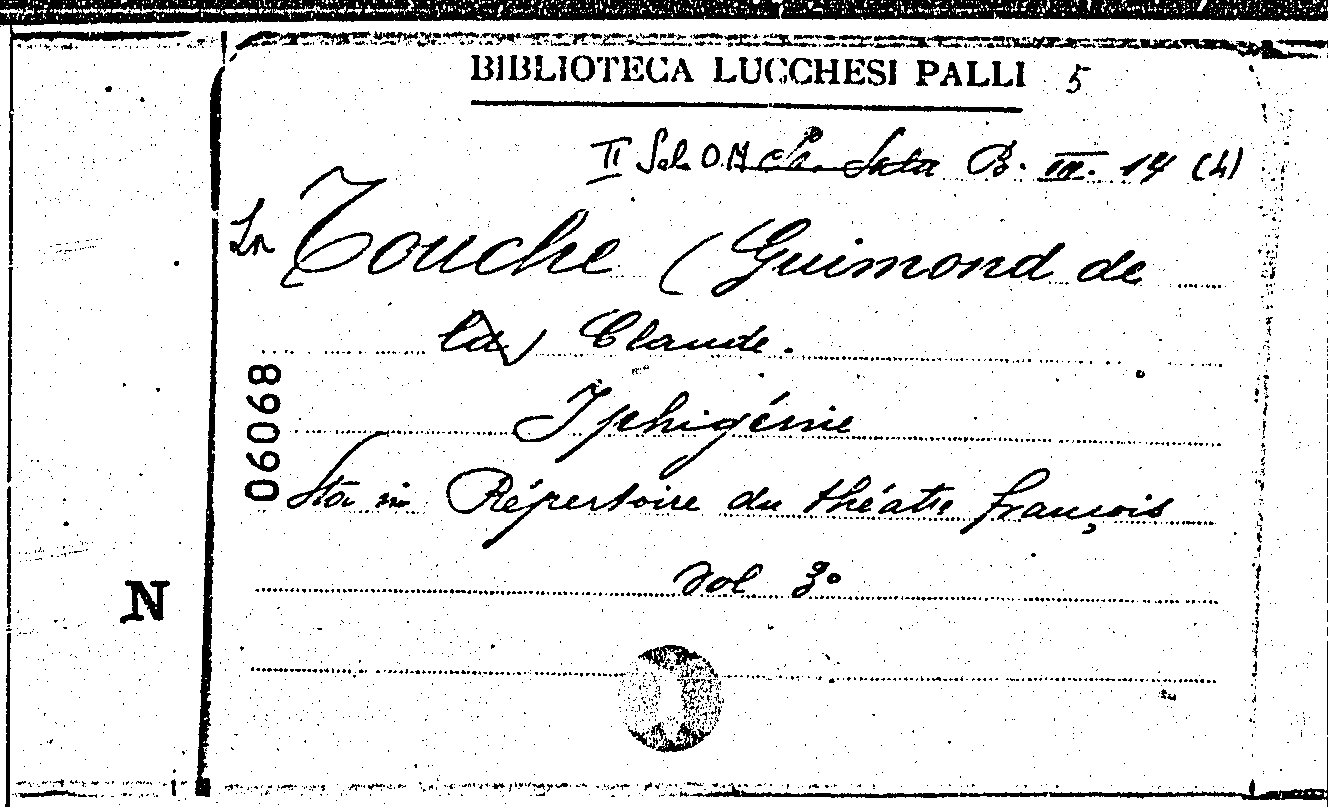 BIBLIOTECA LUCCHESI PALLI 5
II Sal. O.M. B. III. 14 (4)
La Touche (Guimond de
la) Claude.
Iphigénie
Sta in Répertoire du théatre françois
vol 3º
06068
N